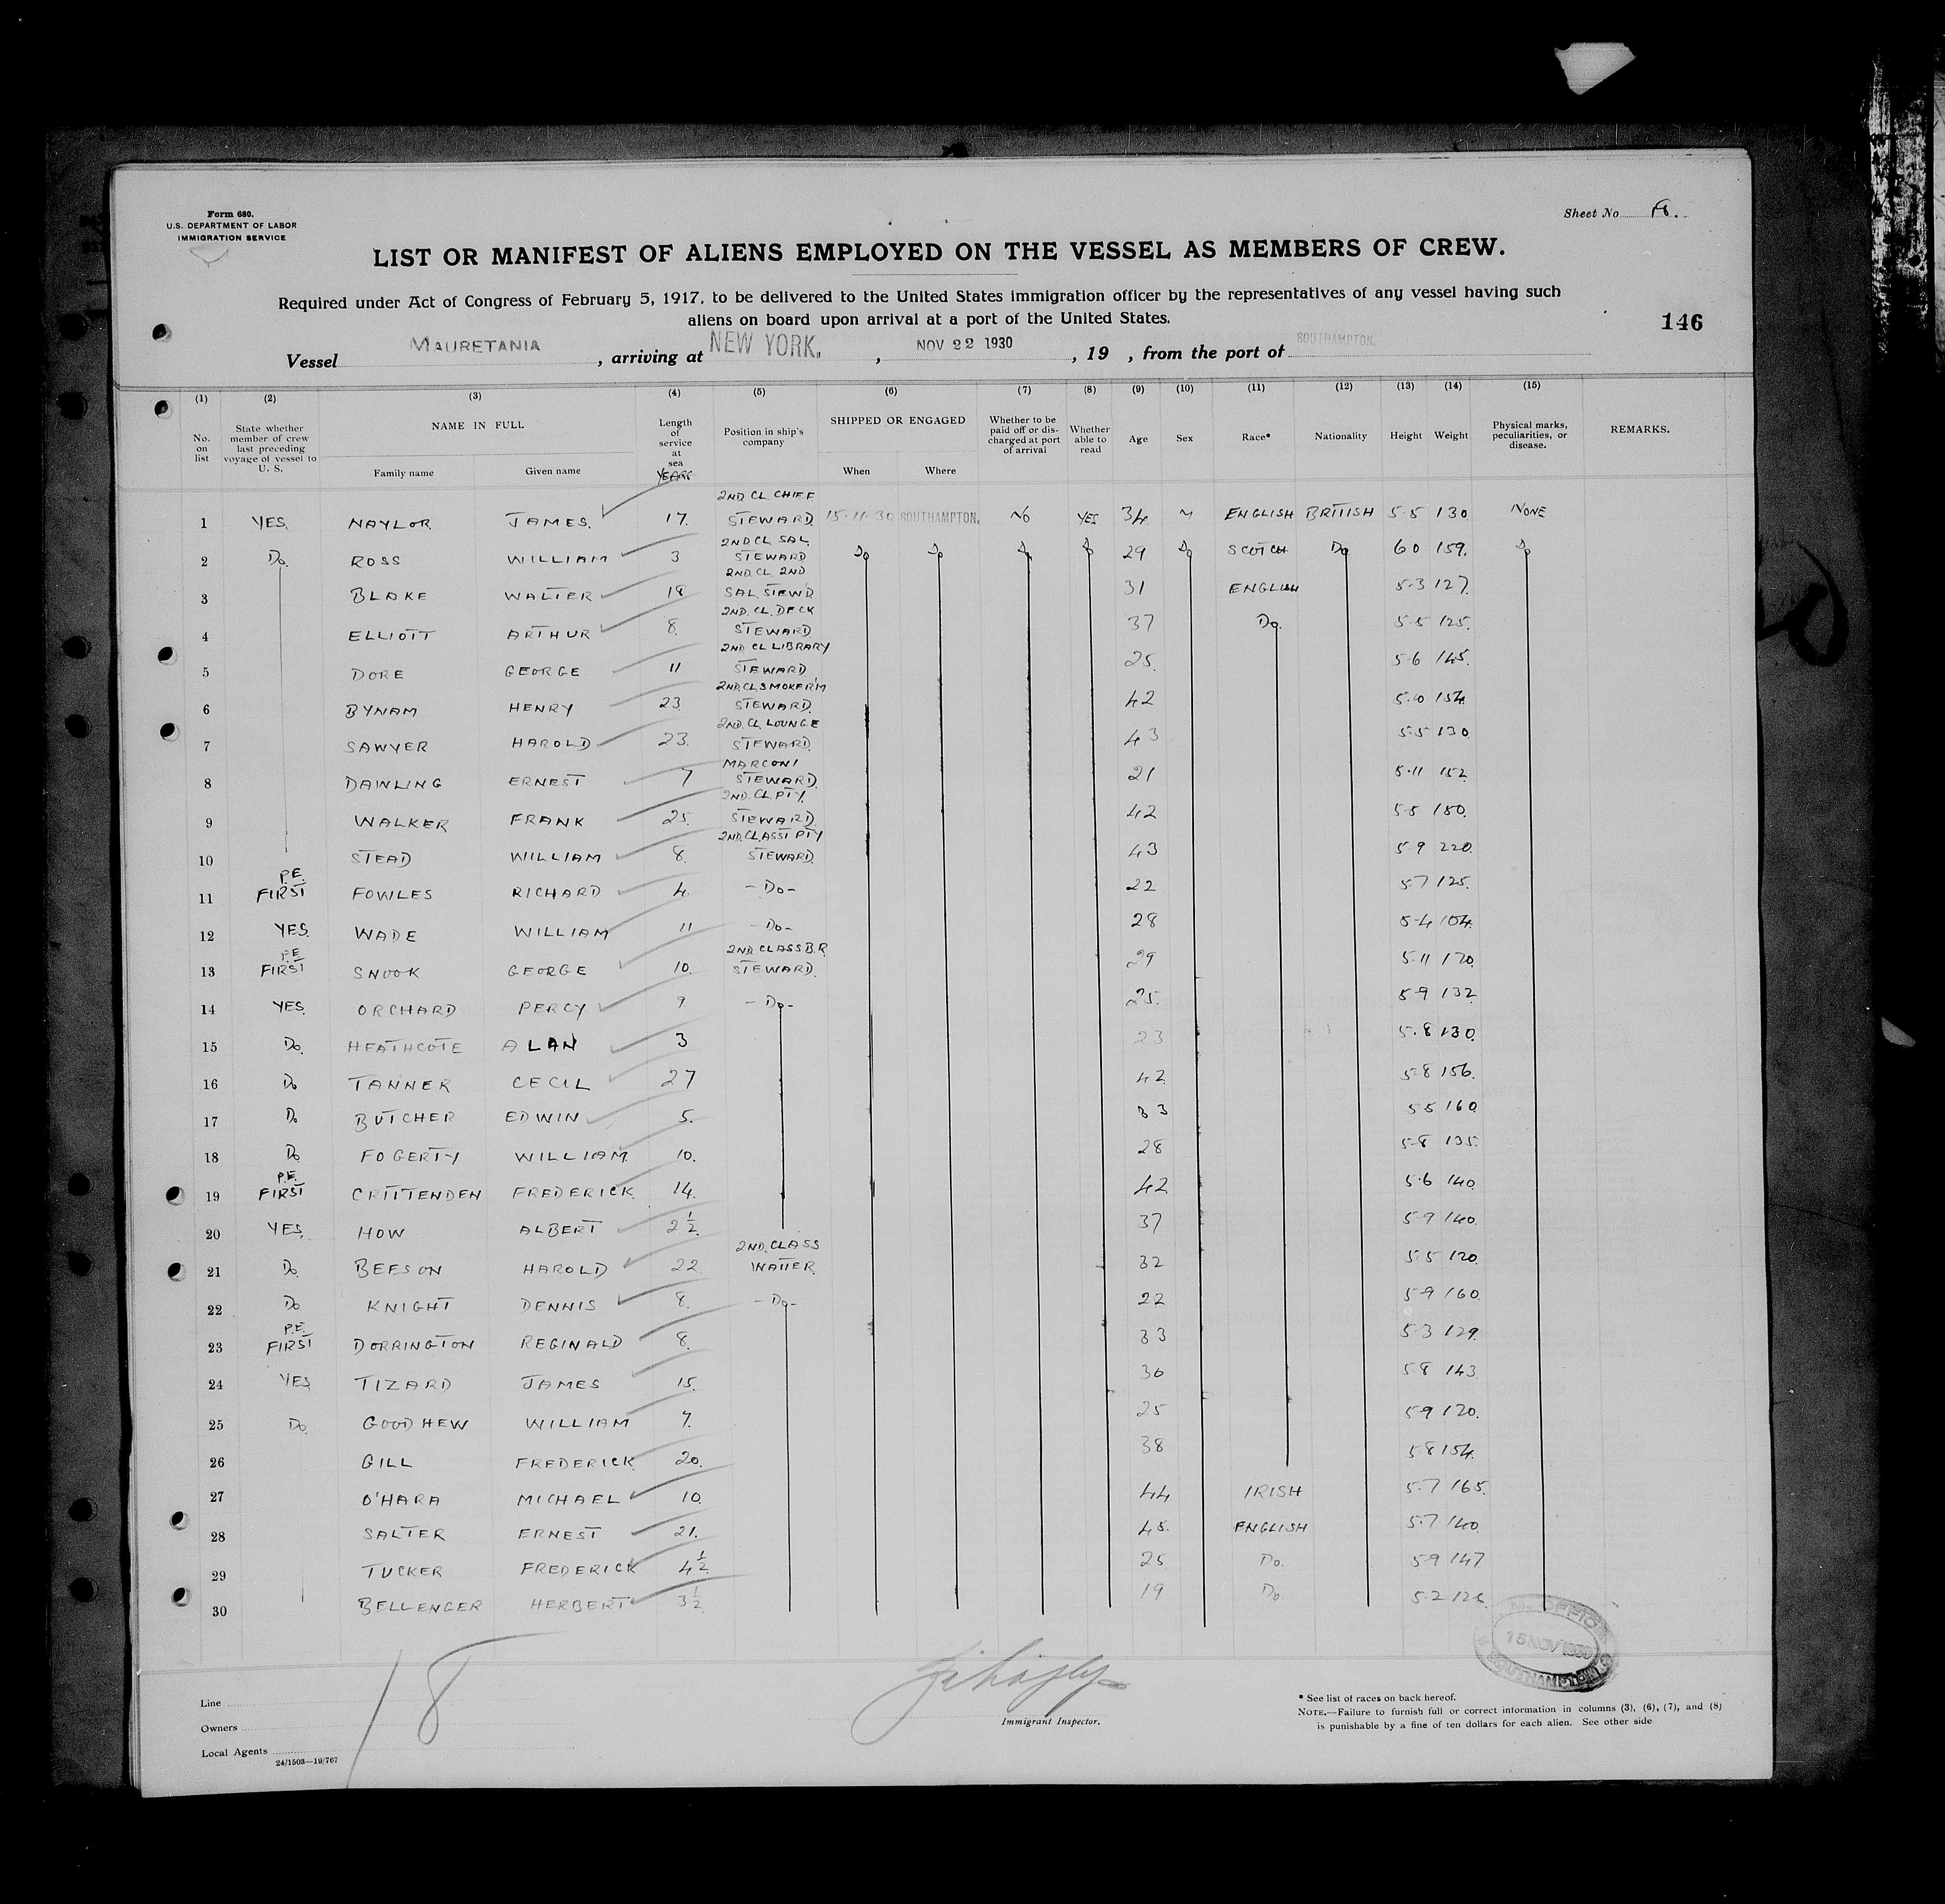 Form 680.
U.S. DEPARTMENT OF LABOR
IMMIGRATION SERVICE
Sheet No
LIST OR MANIFEST OF ALIENS EMPLOYED ON THE VESSEL AS MEMBERS OF CREW.
Required under Act of Congress of February 5, 1917, to be delivered to the United States immigration officer by the representatives of any vessel having such
aliens on board upon arrival at a port of the United States.
146
Vessel MAURETANIA , arriving at NEW YORK. , NOV 22 1930 , 19 , from the port of SOUTHAMPTON.
(1) (2) (3) (4) (5) (6) (7) (8) (9) (10) (11) (12) (13) (14) (15)
No. on list State whether member of crew last preceding voyage of vessel to U. S. NAME IN FULL Family name Given name Length of service at sea YEARS Position in ship's company SHIPPED OR ENGAGED When Where Whether to be paid off or discharged at port of arrival Whether able to read Age Sex Race* Nationality Height Weight Physical marks, peculiarities, or disease. REMARKS.
1 YES. NAYLOR JAMES. 17. 2ND CL CHIEF STEWARD. 15-11-30 SOUTHAMPTON. NO YES 34 M ENGLISH BRITISH 5-5 130 NONE
2 Do. ROSS WILLIAM 3 2ND CL SAL STEWARD Do Do Do Do 29 Do SCOTCH Do 6 0 159. Do
3 BLAKE WALTER 18 2ND. CL. 2ND SAL STEWD 31 ENGLISH 5-3 127.
4 ELLIOTT ARTHUR 8. 2ND. CL. DECK STEWARD 37 Do. 5-5 125.
5 DORE GEORGE 11 2ND CL LIBRARY STEWARD 25. 5-6 145.
6 BYNAM HENRY 23 2ND. CL SMOKER'M STEWARD. 42 154.
7 SAWYER HAROLD 23. 2ND. CL LOUNGE STEWARD. 43 5-5 130.
8 DAWLING ERNEST 7 MARCONI STEWARD. 21 5-11 152.
9 WALKER FRANK 25. 2ND. CL. PTY. STEWARD. 42 5-5 180.
10 STEAD WILLIAM 8. 2ND. CL ASST PTY STEWARD. 43 5-9 220.
11 P.E. FIRST FOWLES RICHARD 4. - Do - 22 5-7 125.
12 YES. WADE WILLIAM 11 - Do - 28 5-4 104.
13 P.E. FIRST SNOOK GEORGE 10. 2ND CLASS B.R. STEWARD. 29 5-11 170.
14 YES. ORCHARD PERCY 9 - Do - 25. 5-9 132.
15 Do. HEATHCOTE ALAN 3 23 5-8 130.
16 Do TANNER CECIL 27 42 5-8 156.
17 Do BUTCHER EDWIN 5. 33 5-5 160.
18 Do FOGERTY WILLIAM. 10. 28 5-8 135.
19 P.E. FIRST CRITTENDEN FREDERICK. 14. 42 5-6 140.
20 YES. HOW ALBERT 2½ 37 5-9 140.
21 Do. BEESON HAROLD 22. 2ND. CLASS WAITER. 32 5-5 120.
22 Do KNIGHT DENNIS 8. - Do - 22 5-9 160.
23 P.E. FIRST DORRINGTON REGINALD 8. 33 5-3 129.
24 YES TIZARD JAMES 15. 30 5-8 143.
25 Do. GOODHEW WILLIAM 7. 25 5-9 120.
26 GILL FREDERICK. 20. 38 5-8 154.
27 O'HARA MICHAEL 10. 44 IRISH 5-7 165.
28 SALTER ERNEST 21. 45. ENGLISH 5-7 140.
29 TUCKER FREDERICK 4½ 25 Do. 5-9 147
30 BELLENGER HERBERT 3½ 19 Do. 5-2
15 NOV 1930
SOUTHAMPTON
18
Line
Owners
Local Agents
24/1503—19/767
Immigrant Inspector.
* See list of races on back hereof.
NOTE.—Failure to furnish full or correct information in columns (3), (6), (7), and (8)
is punishable by a fine of ten dollars for each alien. See other side